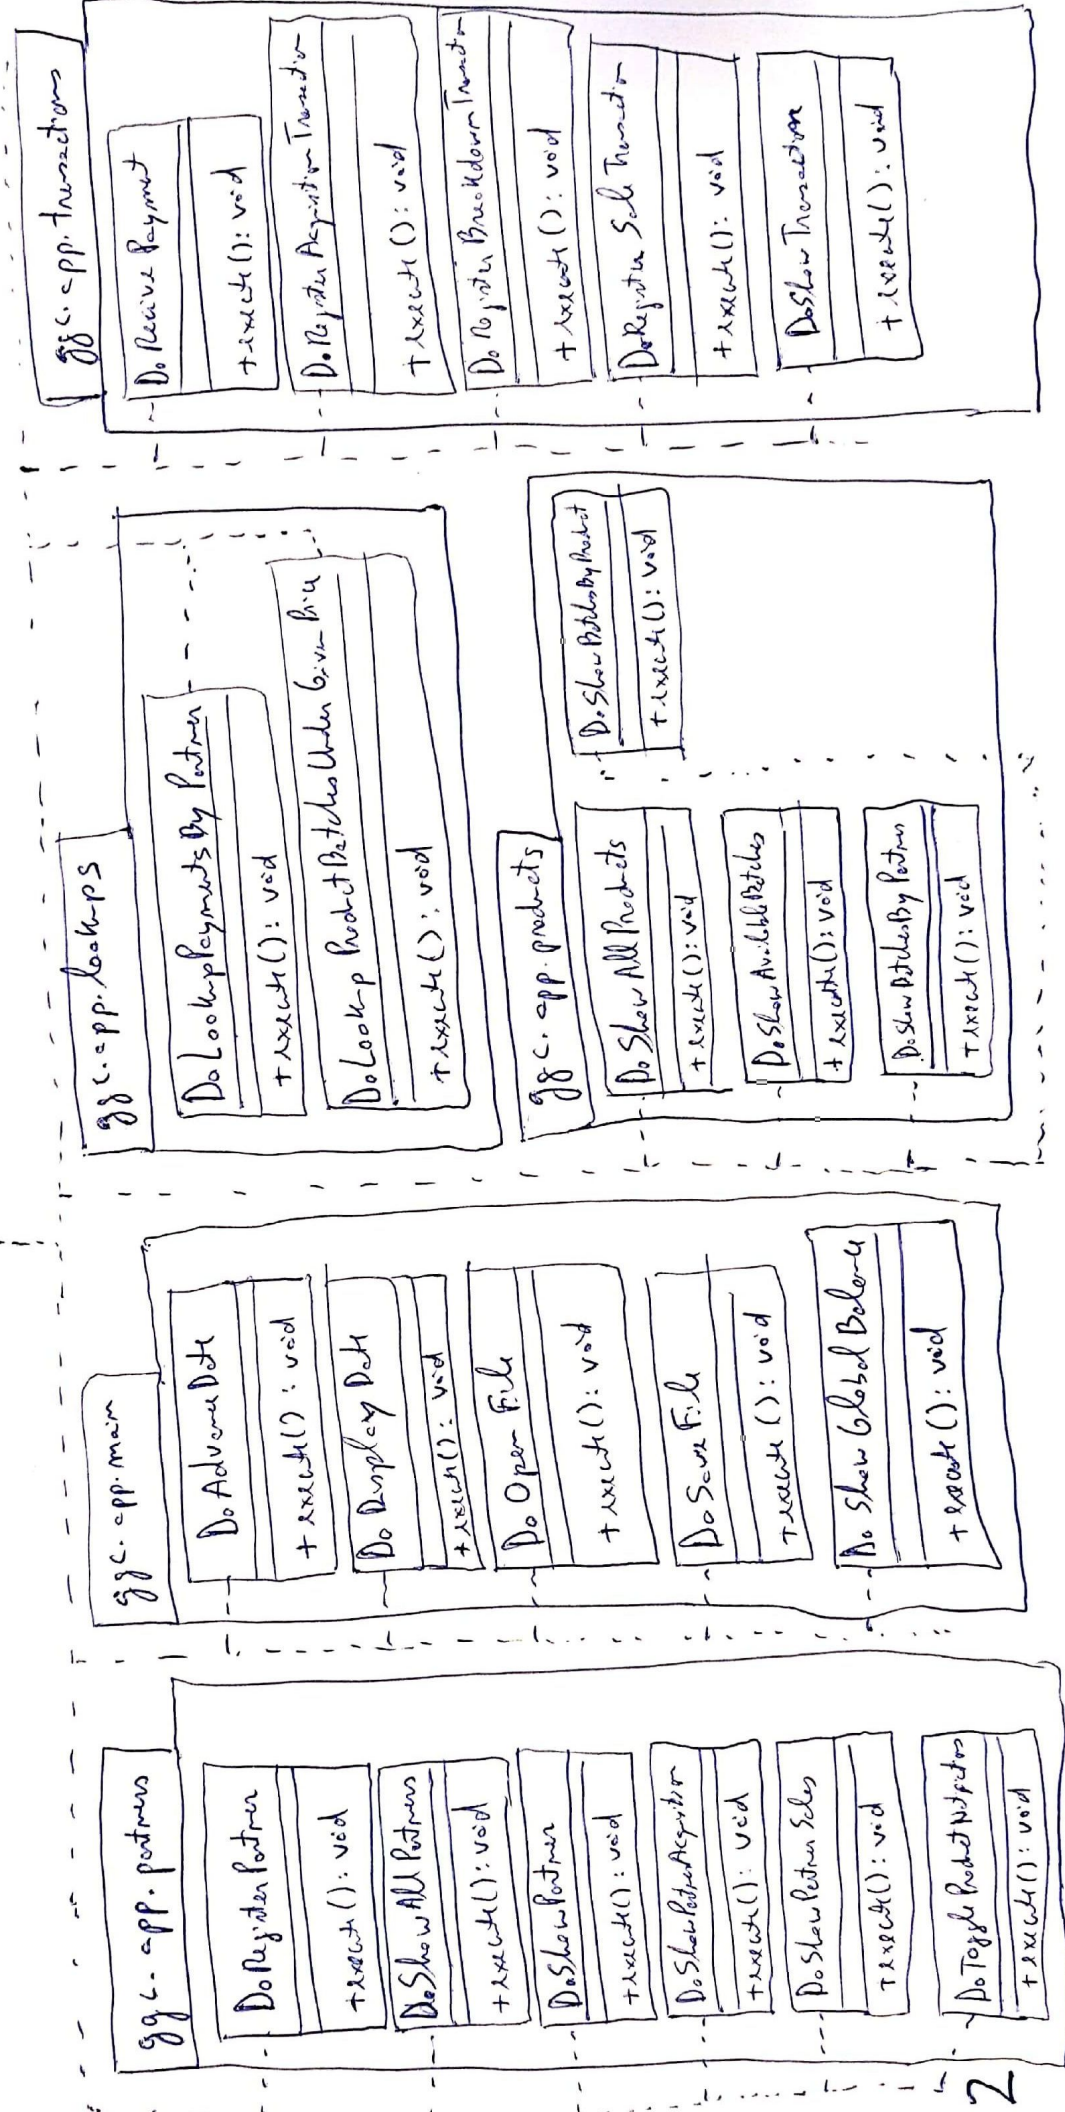 ggc.app.partners
DoRegisterPartner
+execute(): void
DoShowAllPartners
+execute(): void
DoShowPartner
+execute(): void
DoShowPartnerAcquisition
+execute(): void
DoShowPartnerSales
+execute(): void
DoToggleProductNotifictios
+execute(): void
2
ggc.app.main
DoAdvanceDate
+execute(): void
DoDisplayDate
+execute(): void
DoOpenFile
+execute(): void
DoSaveFile
+execute(): void
DoShowGlobalBalance
+execute(): void
ggc.app.lookups
DoLookupPaymentsByPartner
+execute(): void
DoLookupProductBatchesUnderGivenPrice
+execute(): void
ggc.app.products
DoShowAllProducts
+execute(): void
DoShowAvailableBatches
+execute(): void
DoShowBatchesByPartner
+execute(): void
DoShowBatchesByProduct
+execute(): void
ggc.app.transactions
DoReceivePayment
+execute(): void
DoRegisterAcquisitionTransaction
+execute(): void
DoRegisterBreakdownTransaction
+execute(): void
DoRegisterSaleTransaction
+execute(): void
DoShowTransaction
+execute(): void